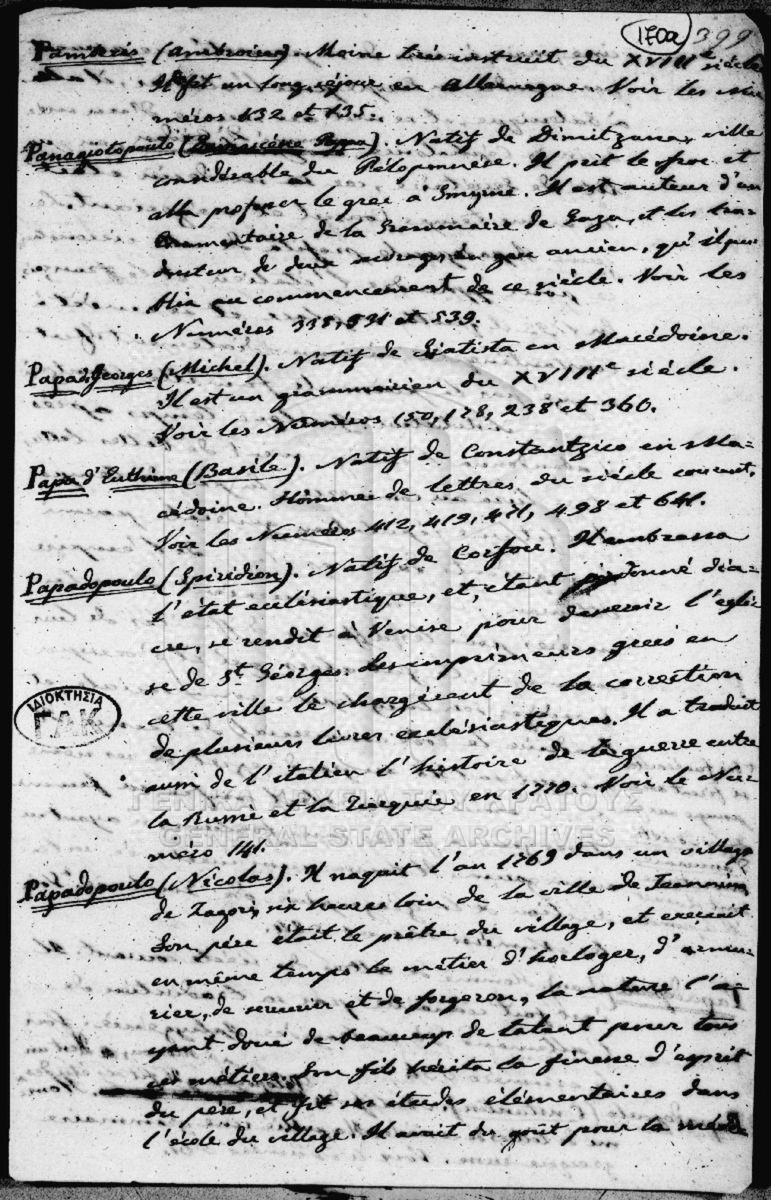 170a 399
Pamteris (Ambroise). Moine très instruit du XVIIIe siècle
Il fit un long séjour en Allemagne. Voir les Nu-
méros 132 et 135.
Panagiotopoulo (Damascène Pappa). Natif de Dimitzana, ville
considérable du Péloponnèse. Il prit le froc et
alla professer le grec à Smyrne. Il est auteur d'un
Commentaire de la Grammaire de Gaza, et les tra-
ducteur de deux ouvrages en grec ancien, qu'il pu-
blia au commencement de ce siècle. Voir les
Numéros 338, 531 et 539.
Papa d. Georges (Michel). Natif de Sjatista en Macédoine.
Il est un grammairien du XVIIIe siècle.
Voir les Numéros 150, 178, 238 et 360.
Papa d'Euthime (Basile). Natif de Constantzico en Ma-
cédoine. Homme de lettres du siècle courant.
Voir les Numéros 412, 419, 471, 498 et 641.
Papadopoulo (Spiridion). Natif de Corfou. Il embrassa
l'état ecclésiastique, et, étant ordonné dia-
cre, se rendit à Venise pour desservir l'égli-
se de St. Georges. Les imprimeurs grecs en
cette ville le chargèrent de la correction
de plusieurs livres ecclésiastiques. Il a traduit
aussi de l'italien l'histoire de la guerre entre
la Russie et la Turquie en 1770. Voir le Nu-
méro 141.
ΙΔΙΟΚΤΗΣΙΑ
Γ.Α.Κ.
ΓΕΝΙΚΑ ΑΡΧΕΙΑ ΤΟΥ ΚΡΑΤΟΥΣ
GENERAL STATE ARCHIVES
Papadopoulo (Nicolas). Il naquit l'an 1769 dans un village
de Zagori, six heures loin de la ville de Jeannina
Son père était le prêtre du village, et exerçait
en même temps le métier d'horloger, d'armu-
rier, de serrurier et de forgeron, la nature l'a-
yant doué de beaucoup de talent pour tous
ces métiers. Son fils hérita la finesse d'esprit
du père, et fit ses études élémentaires dans
l'école du village. Il avait du goût pour la méde